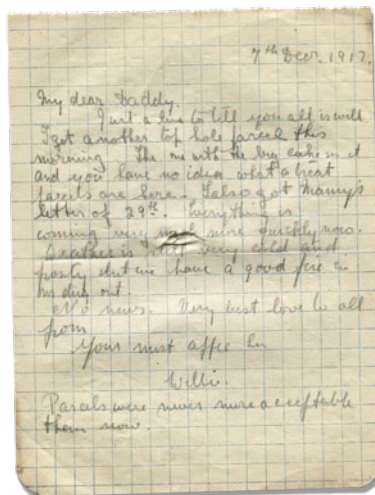 7th Decr. 1917.
My dear Daddy,
Just a line to tell you all is well
I got another top hole parcel this
morning The one with the big cake in it
and you have no idea what a treat
parcels are here. I also got Mamy's
letter of 29th. Everything is
coming very much more quickly now.
Weather is still very cold and
frosty but we have a good fire in
our dug out.
No news. Very best love to all
from
Your most affec Son
Willie.
Parcels were never more acceptable
than now.